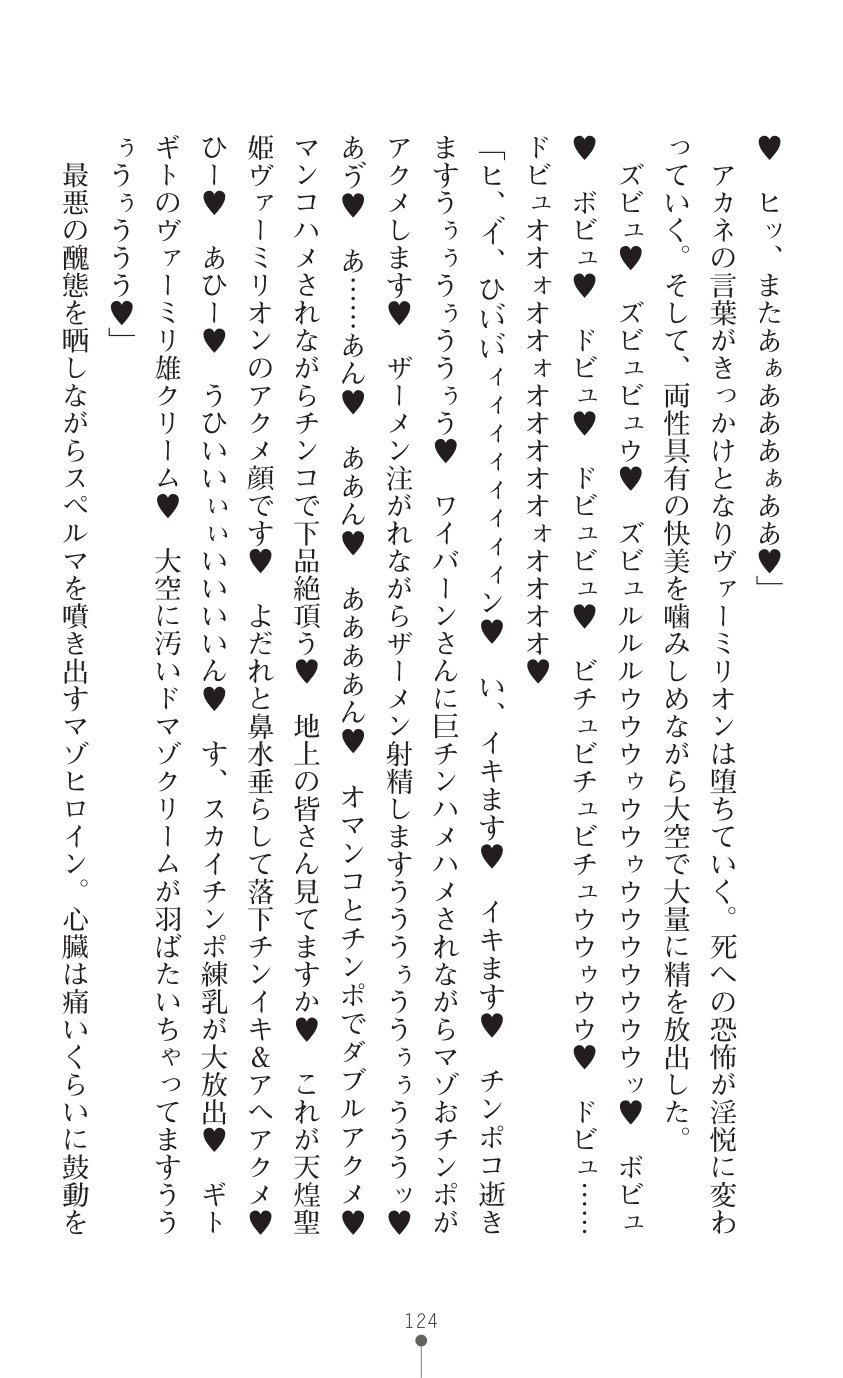 ♥　ヒッ、またあぁあああぁああ♥」
　アカネの言葉がきっかけとなりヴァーミリオンは堕ちていく。死への恐怖が淫悦に変わ
っていく。そして、両性具有の快美を噛みしめながら大空で大量に精を放出した。
　ズビュ♥　ズビュビュウ♥　ズビュルルルウウウゥウウゥウウウウウウウッ♥　ボビュ
♥　ボビュ♥　ドビュ♥　ドビュビュ♥　ビチュビチュビチュウウゥウウ♥　ドビュ……
ドビュオオォオオォオオオオオォオオオオ♥
「ヒ、イ゛、ひい゛い゛ィィィィィィィィン♥　い、イキます♥　イキます♥　チンポコ逝き
ますうぅぅうぅううぅう♥　ワイバーンさんに巨チンハメハメされながらマゾおチンポが
アクメします♥　ザーメン注がれながらザーメン射精しますうううぅううぅぅうううッ♥
あゔ♥　あ……あん♥　ああん♥　ああああん♥　オマンコとチンポでダブルアクメ♥
マンコハメされながらチンコで下品絶頂う♥　地上の皆さん見てますか♥　これが天煌聖
姫ヴァーミリオンのアクメ顔です♥　よだれと鼻水垂らして落下チンイキ＆アヘアクメ♥
ひー♥　あひー♥　うひいいぃぃいいいいん♥　す、スカイチンポ練乳が大放出♥　ギト
ギトのヴァーミリ雄クリーム♥　大空に汚いドマゾクリームが羽ばたいちゃってますうう
ぅうぅううう♥」
　最悪の醜態を晒しながらスペルマを噴き出すマゾヒロイン。心臓は痛いくらいに鼓動を
124